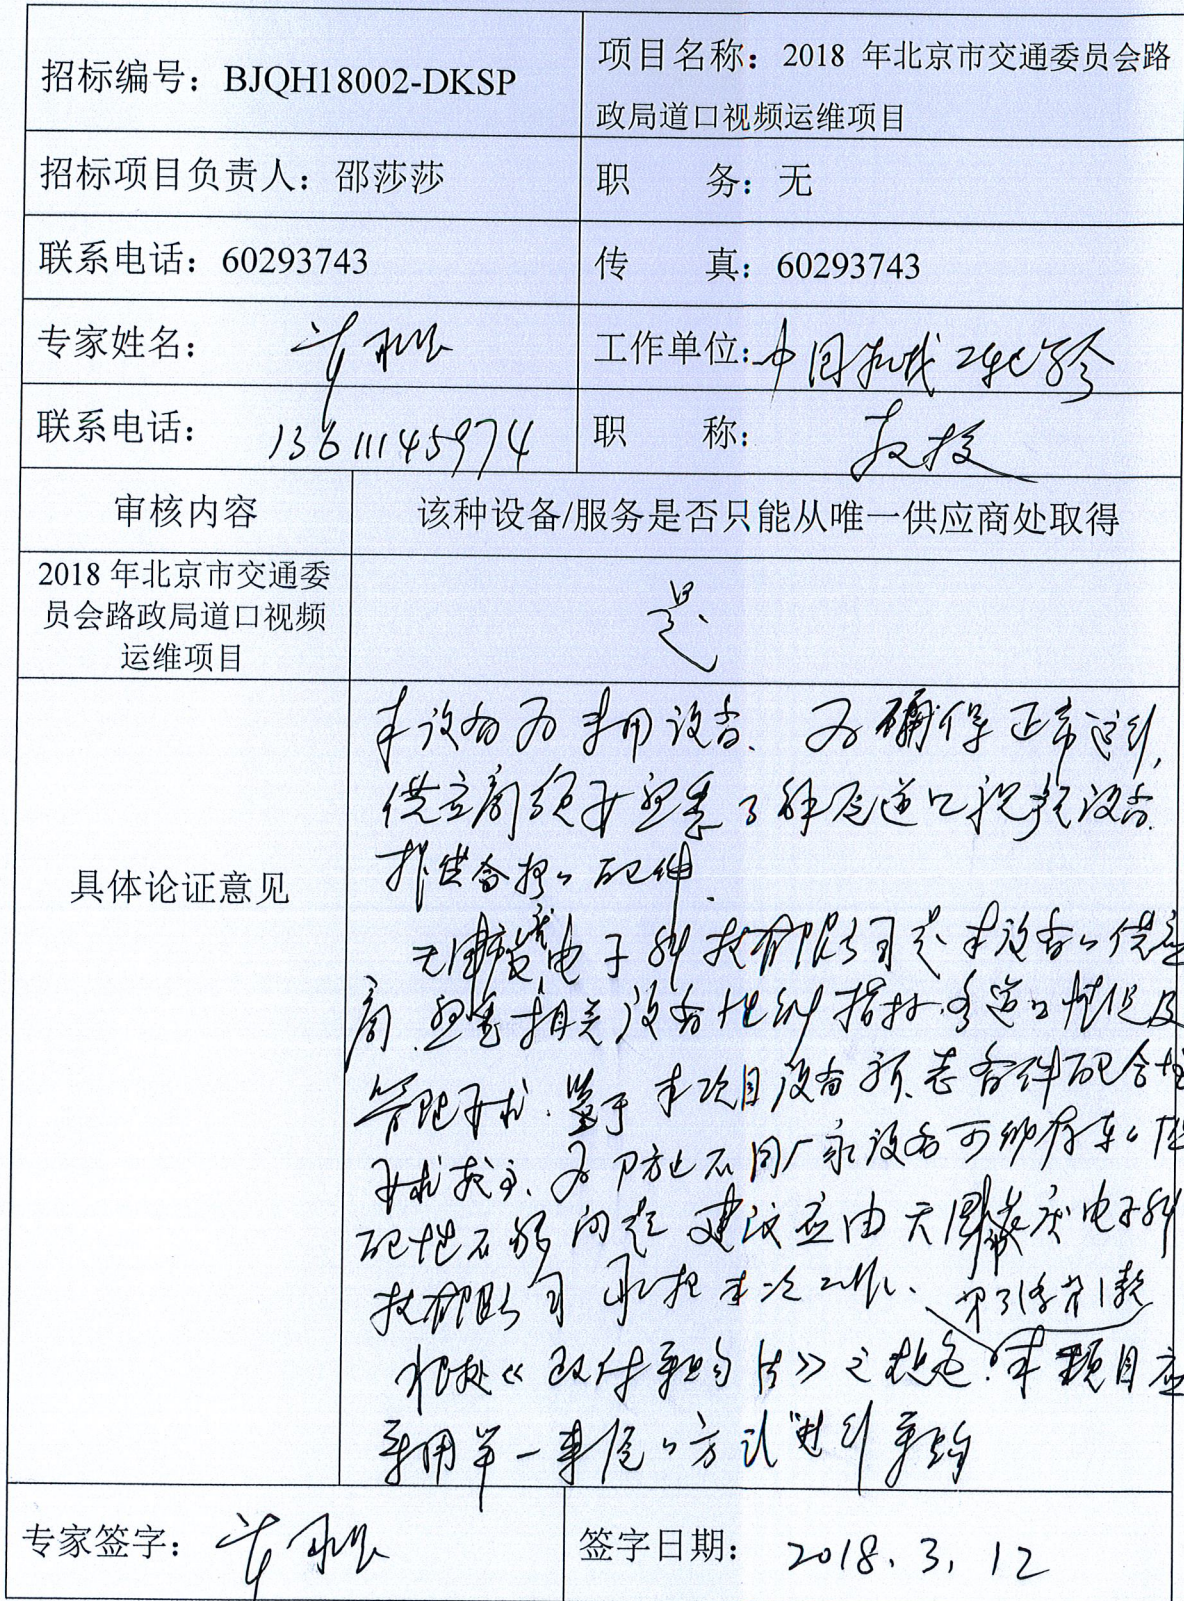 招标编号：BJQH18002-DKSP
项目名称：2018 年北京市交通委员会路
政局道口视频运维项目
招标项目负责人：邵莎莎
职 务：无
联系电话：60293743
传 真：60293743
专家姓名：
工作单位：中国机械
联系电话：13611145974
职 称：教授
审核内容
该种设备/服务是否只能从唯一供应商处取得
2018 年北京市交通委
员会路政局道口视频
运维项目
是
具体论证意见
本设备为专用设备、为确保正常运行,
供应商须要熟悉了解各道口视频设备
提供合格的配件.
天津 电子科技有限公司是本设备的供应
商.熟悉相关设备性能指标.各道口情况及
管理要求.鉴于本项目设备 备件配合性
要求较高、为防止不同厂家设备可能存在的
配性不够问题 建议应由天津 电子科
技有限公司承担本次工作、
第31条第1款
根据《政府采购法》之规定.本项目应
采用单一来源的方式进行采购
专家签字：
签字日期： 2018.3.12